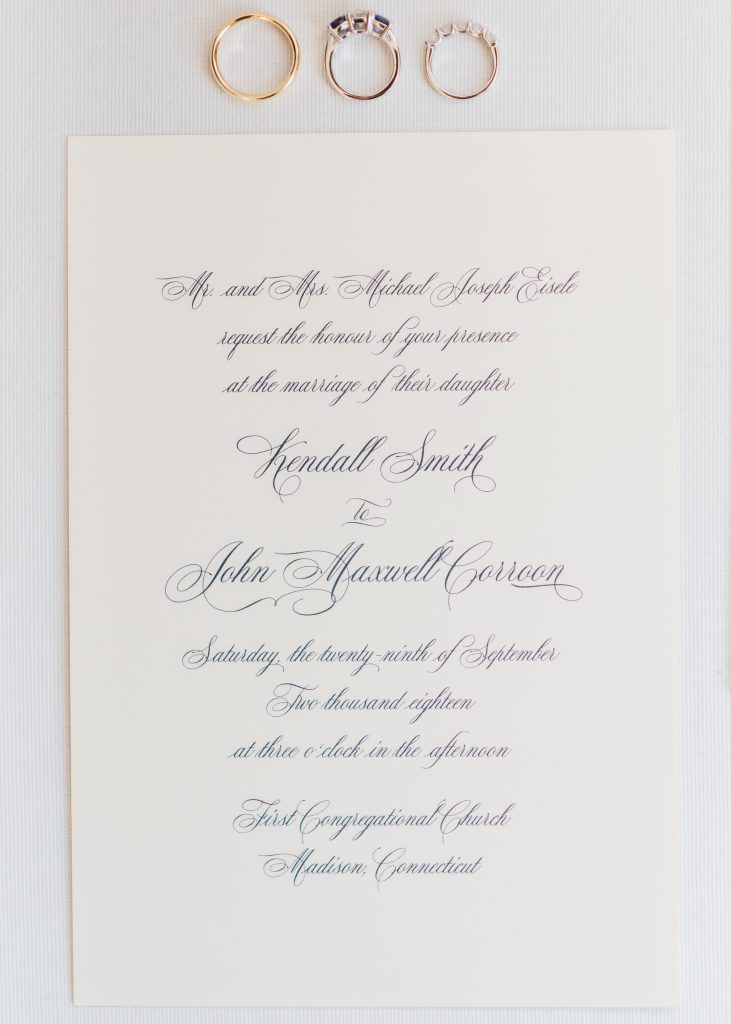 Mr. and Mrs. Michael Joseph Eisele
request the honour of your presence
at the marriage of their daughter
Kendall Smith
To
John Maxwell Corroon
Saturday, the twenty-ninth of September
Two thousand eighteen
at three o'clock in the afternoon
First Congregational Church
Madison, Connecticut